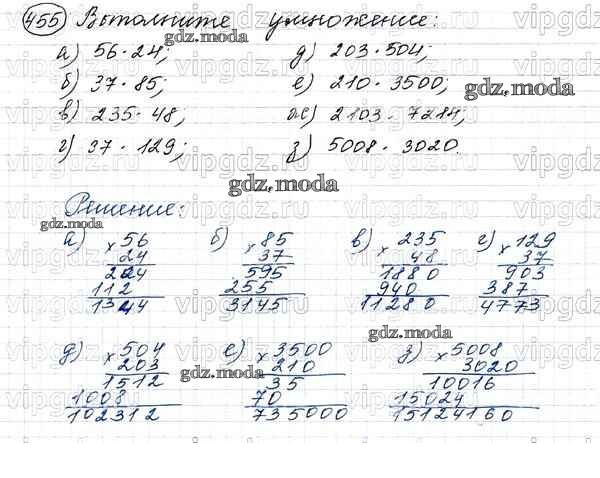 455 Выполните умножение:
а) 56 · 24; д) 203 · 504;
б) 37 · 85; е) 210 · 3500;
в) 235 · 48; ж) 2103 · 7214;
г) 37 · 129; з) 5008 · 3020.
gdz.moda
gdz.moda
gdz.moda
gdz.moda
Решение:
gdz.moda
а) × 56 б) × 85 в) × 235 г) × 129
24 37 48 37
204 595 1880 903
112 255 940 387
1344 3145 11280 4773
gdz.moda
д) × 504 е) × 3500 з) × 5008
203 210 3020
1512 35 10016
1008 70 15024
102312 735000 15124160
gdz.moda
vipgdz.ru